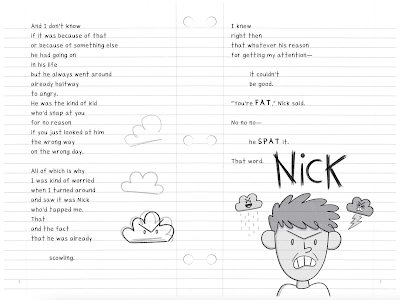 And I don't know
if it was because of that
or because of something else
he had going on
in his life
but he always went around
already halfway
to angry.
He was the kind of kid
who'd snap at you
for no reason
if you just looked at him
the wrong way
on the wrong day.
All of which is why
I was kind of worried
when I turned around
and saw it was Nick
who'd tapped me.
That
and the fact
that he was already
scowling.
I knew
right then
that whatever his reason
for getting my attention—
it couldn't
be good.
"You're FAT," Nick said.
No no no—
he SPAT it.
That word.
NicK